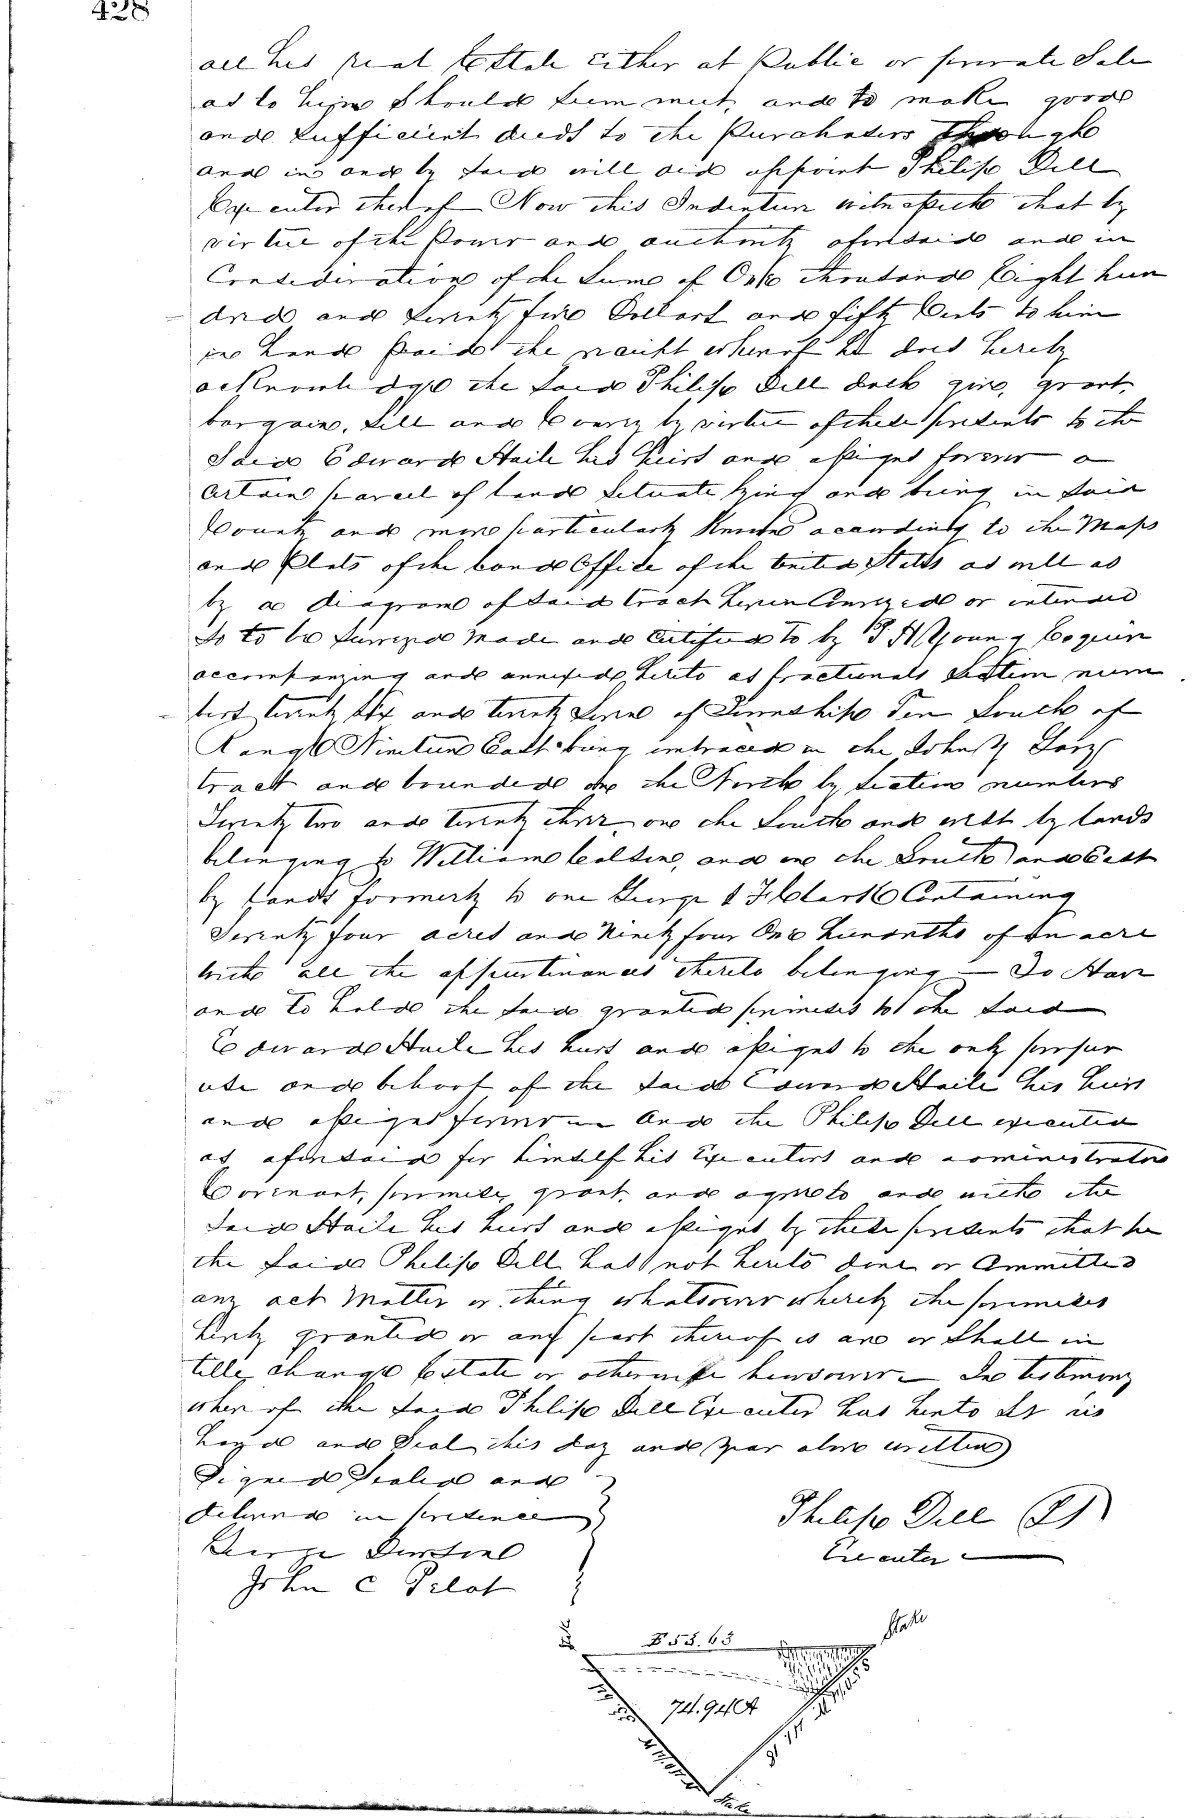 428
all his real Estate Either at Public or private Sale
as to him Should Seem meet, and to make good
and Sufficient deeds to the Purchasers
and in and by Said will did appoint Philip Dell
Executor thereof Now this Indenture witnesseth that by
virtue of the Power and authority aforesaid and in
Consideration of the Sum of One thousand Eight hun
dred and Seventy five Dollars and fifty Cents to him
in hand Paid the receipt whereof he does hereby
acknowledge the Said Philip Dell doth give, grant,
bargain, Sell and Convey by virtue of these presents to the
Said Edward Haile his heirs and assigns forever a
certain parcel of land Situate lying and being in Said
County and more particularly Known according to the Maps
and Plats of the Land Office of the United States as well as
by a diagram of Said tract herein Conveyed or intended
So to be Surveyed Made and Certified to by Young Esquire
accompanying and annexed hereto as fractional Section num
bers twenty Six and twenty Seven of Township Ten South of
Range Nineteen East being embraced in the
tract and bounded on the North by Section numbers
Twenty two and twenty three, on the South and west by lands
belonging to William and on the South and East
by Lands formerly to one George Clark Containing
Seventy four acres and Ninety four One hundredths of an acre
with all the appurtenances thereto belonging — To Have
and to hold the Said granted premises to the Said
Edward Haile his heirs and assigns to the only proper
use and behoof of the Said Edward Haile his heirs
and assigns forever — And the Philip Dell executor
as aforesaid for himself his Executors and administrators
Covenant, promise, grant, and agree to and with the
Said Haile his heirs and assigns by these presents that he
the Said Philip Dell has not hereto done or Committed
any act Matter or thing whatsoever whereby the premises
hereby granted or any part thereof is are or Shall in
title, change Estate or otherwise howsoever — In testimony
whereof the Said Philip Dell Executor has hereto Set his
hand and Seal this day and year above written
Signed Sealed and
delivered in presence
George
John C Pelot
Philip Dell
Executor
Stake
74.94 A
Stake